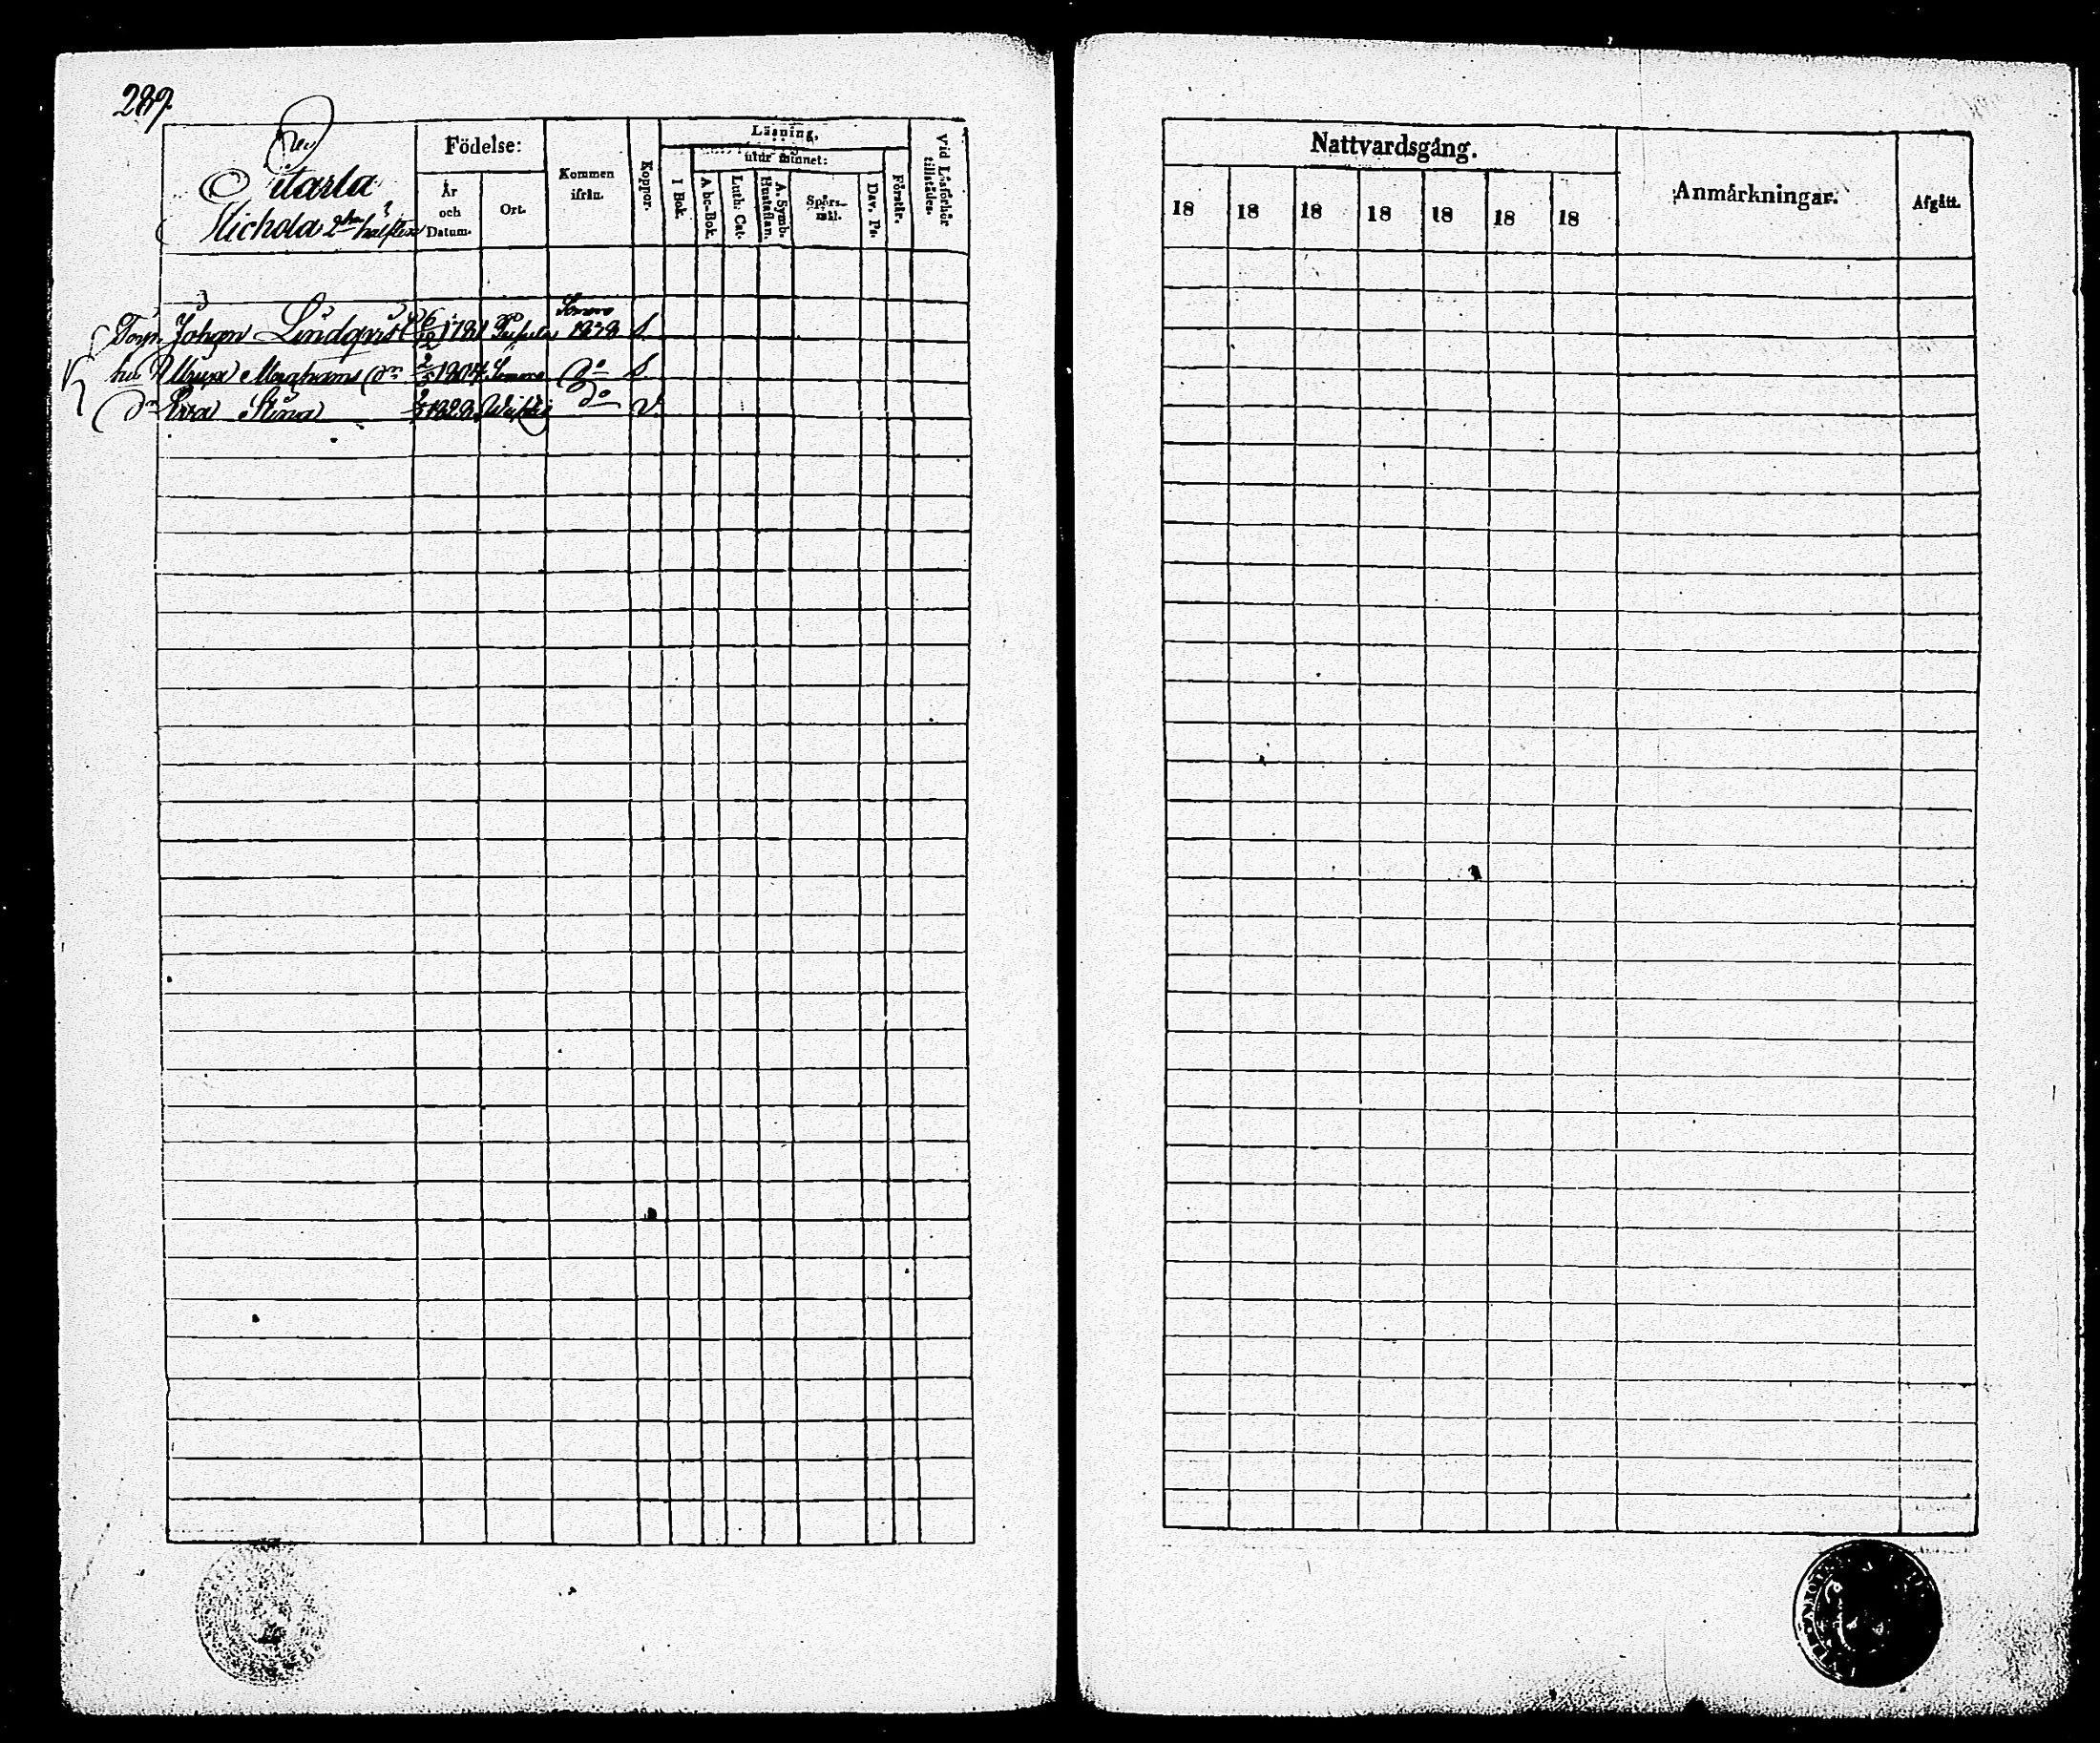 289
Pitarla
Michola 2dra hälften
Födelse:
År och Datum.
Ort.
Kommen ifrån.
Koppor.
Läsning,
I Bok.
utur minnet:
A bc-Bok.
Luth. Cat.
A. Symb. Hustaflan.
Spörs- mål.
Dav. Ps.
Förstår.
Vid Läsförhör tillstädes.
Johan Lindqvist 6/12 1781 Somero 1828 S.
hu Ulrica Abrahamsdr 1807 Somero Do S.
dr Stina 1829 Do v.
Nattvardsgång.
18 18 18 18 18 18 18
Anmärkningar.
Afgått.